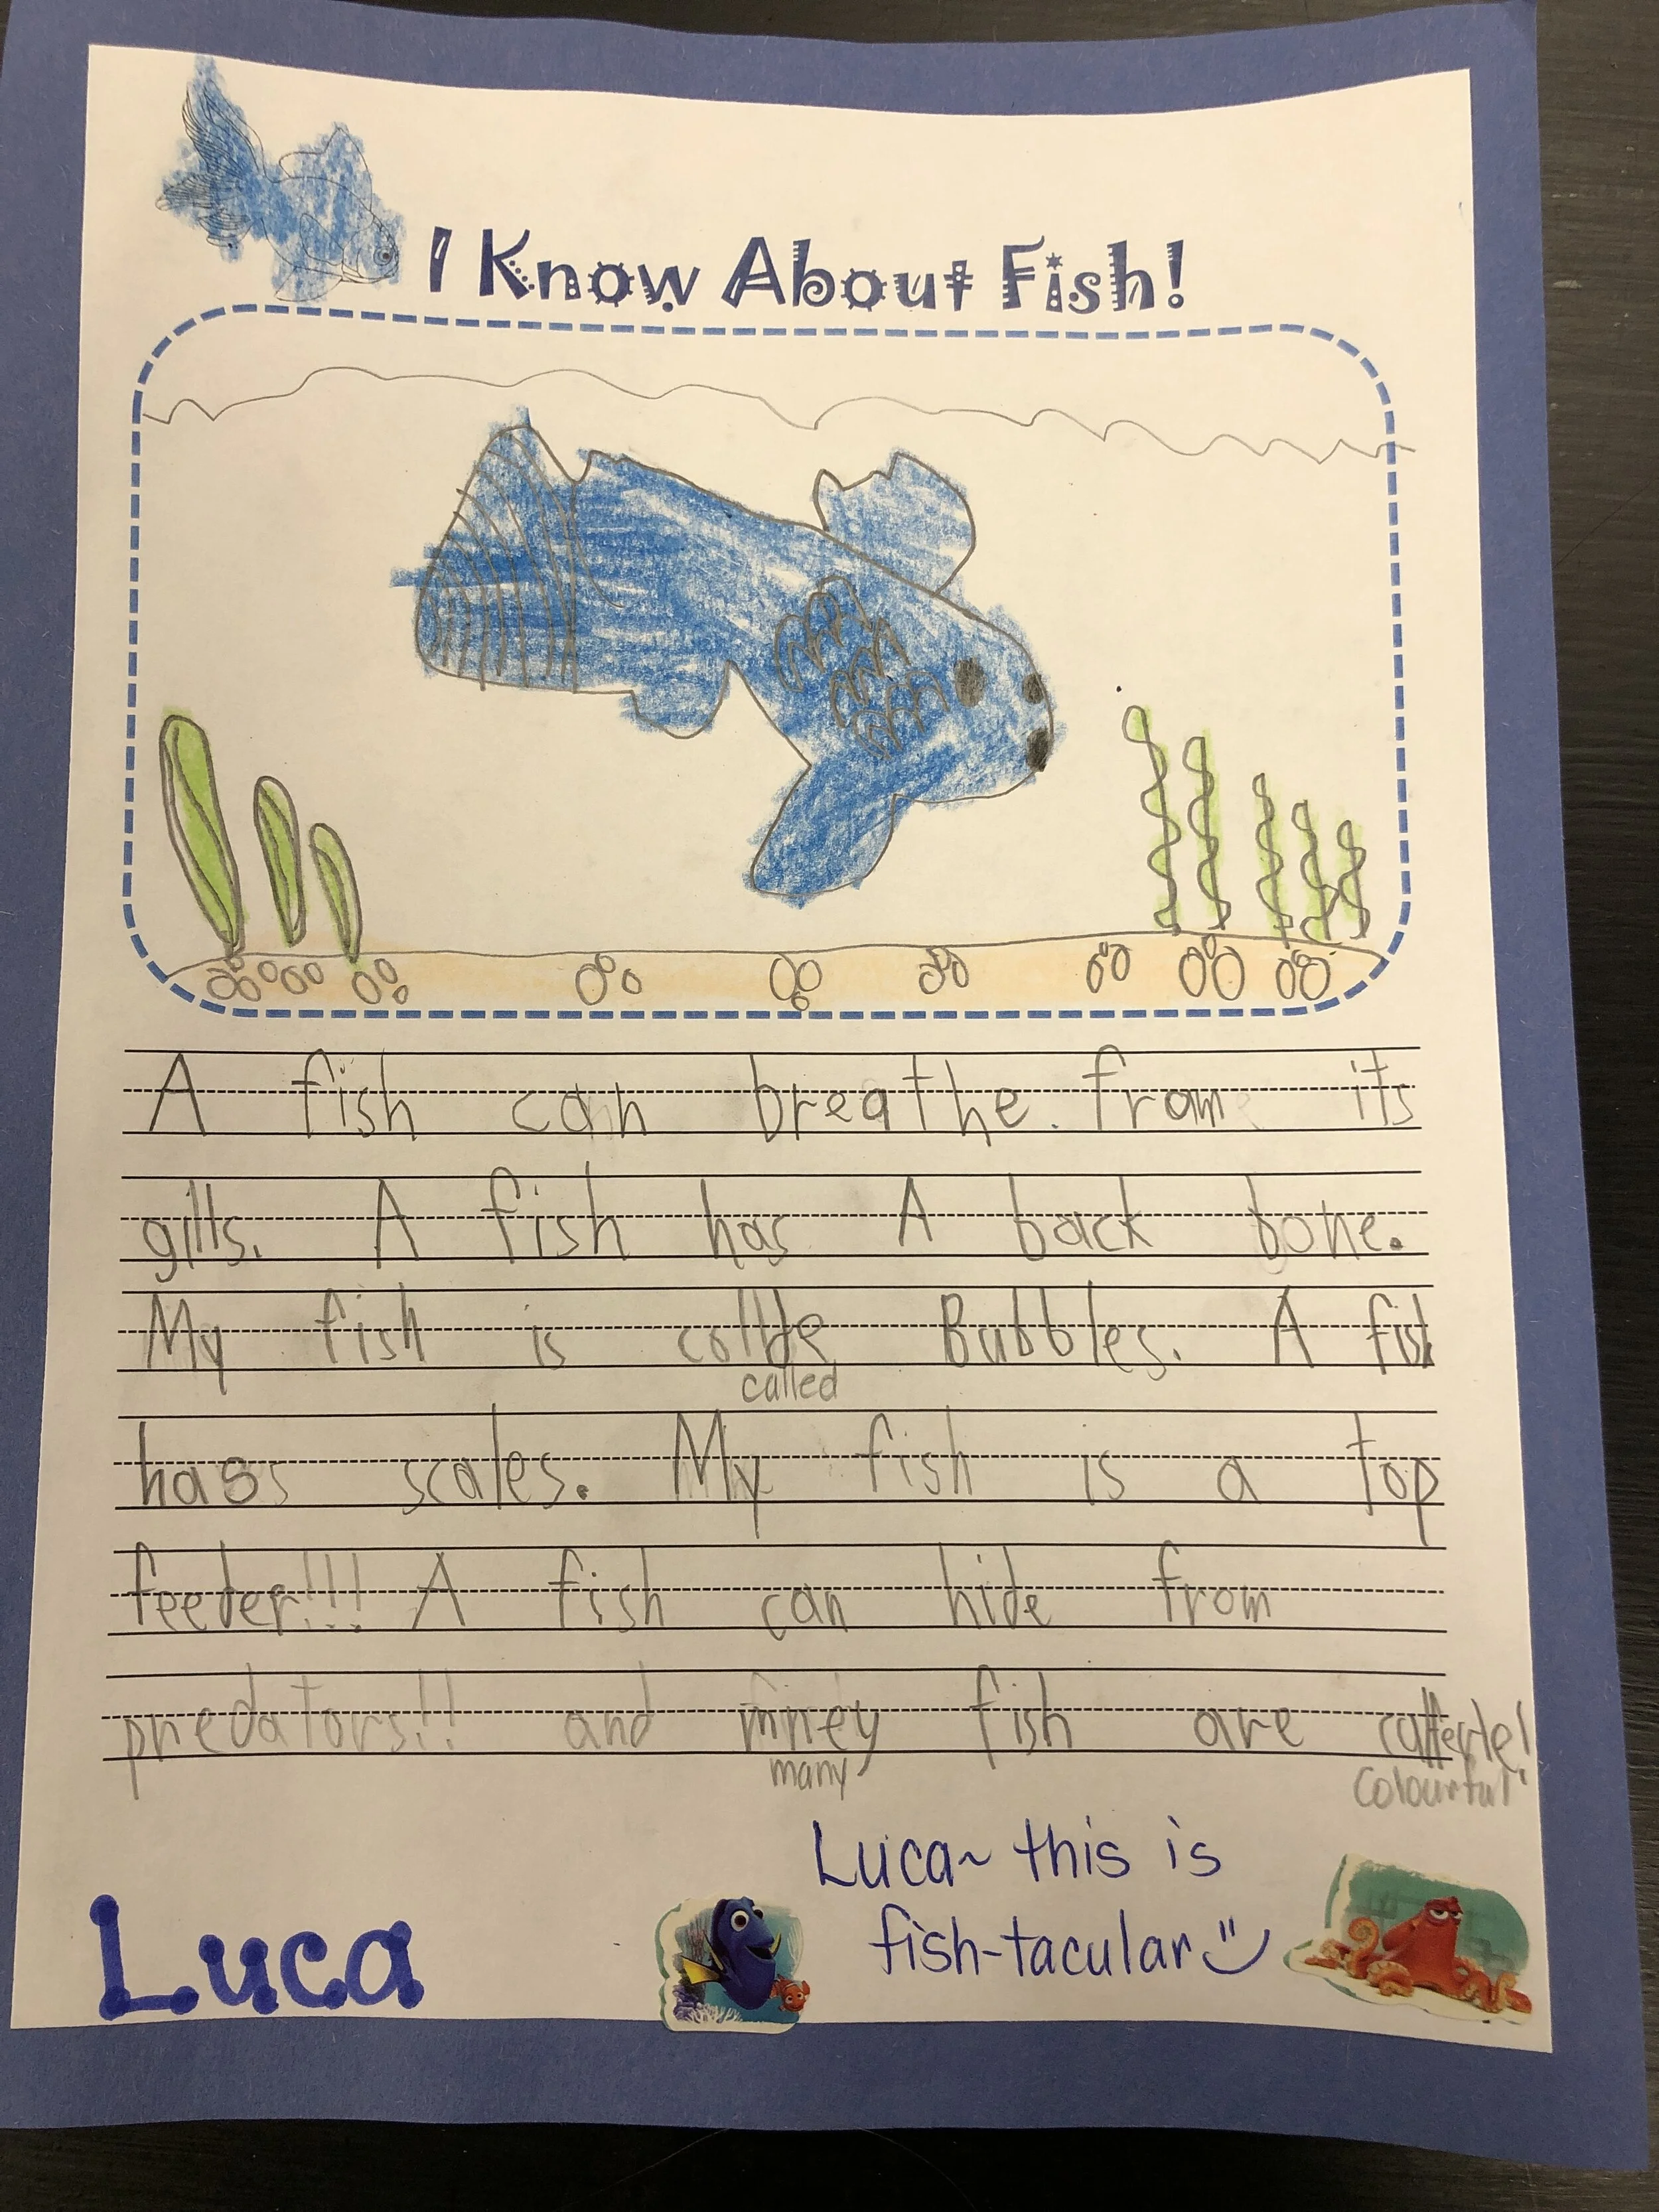 I Know About Fish!
A fish can breathe. from its
gills. A fish has A back bone.
My fish is collde Bubbles. A fish
called
hass scales. My fish is a top
feeder!!! A fish can hide from
predators!! and miney fish are
many
colourful!
Luca~ this is
fish-tacular
Luca